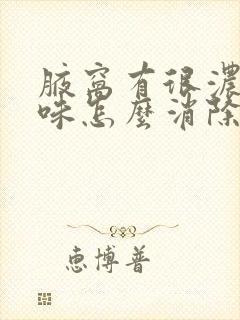 腋窝有很濃
味怎麼消除
惠博普